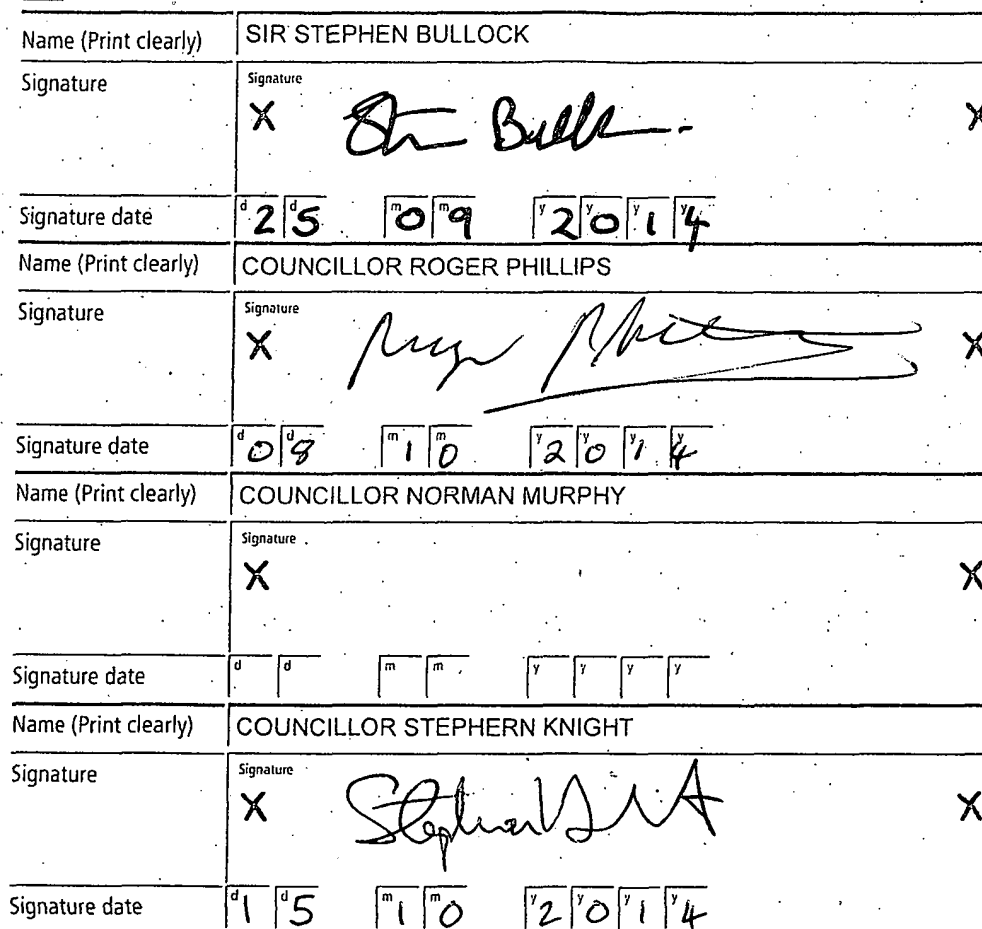 Name (Print clearly) SIR STEPHEN BULLOCK
Signature Signature
X Stn Bull X
Signature date d 2 d 5 m 0 m 9 y 2 y 0 y 1 y 4
Name (Print clearly) COUNCILLOR ROGER PHILLIPS
Signature Signature
X Roger Phillips X
Signature date d 0 d 8 m 1 m 0 y 2 y 0 y 1 y 4
Name (Print clearly) COUNCILLOR NORMAN MURPHY
Signature Signature
X X
Signature date d d m m y y y y
Name (Print clearly) COUNCILLOR STEPHERN KNIGHT
Signature Signature
X Stephen X
Signature date d 1 d 5 m 1 m 0 y 2 y 0 y 1 y 4